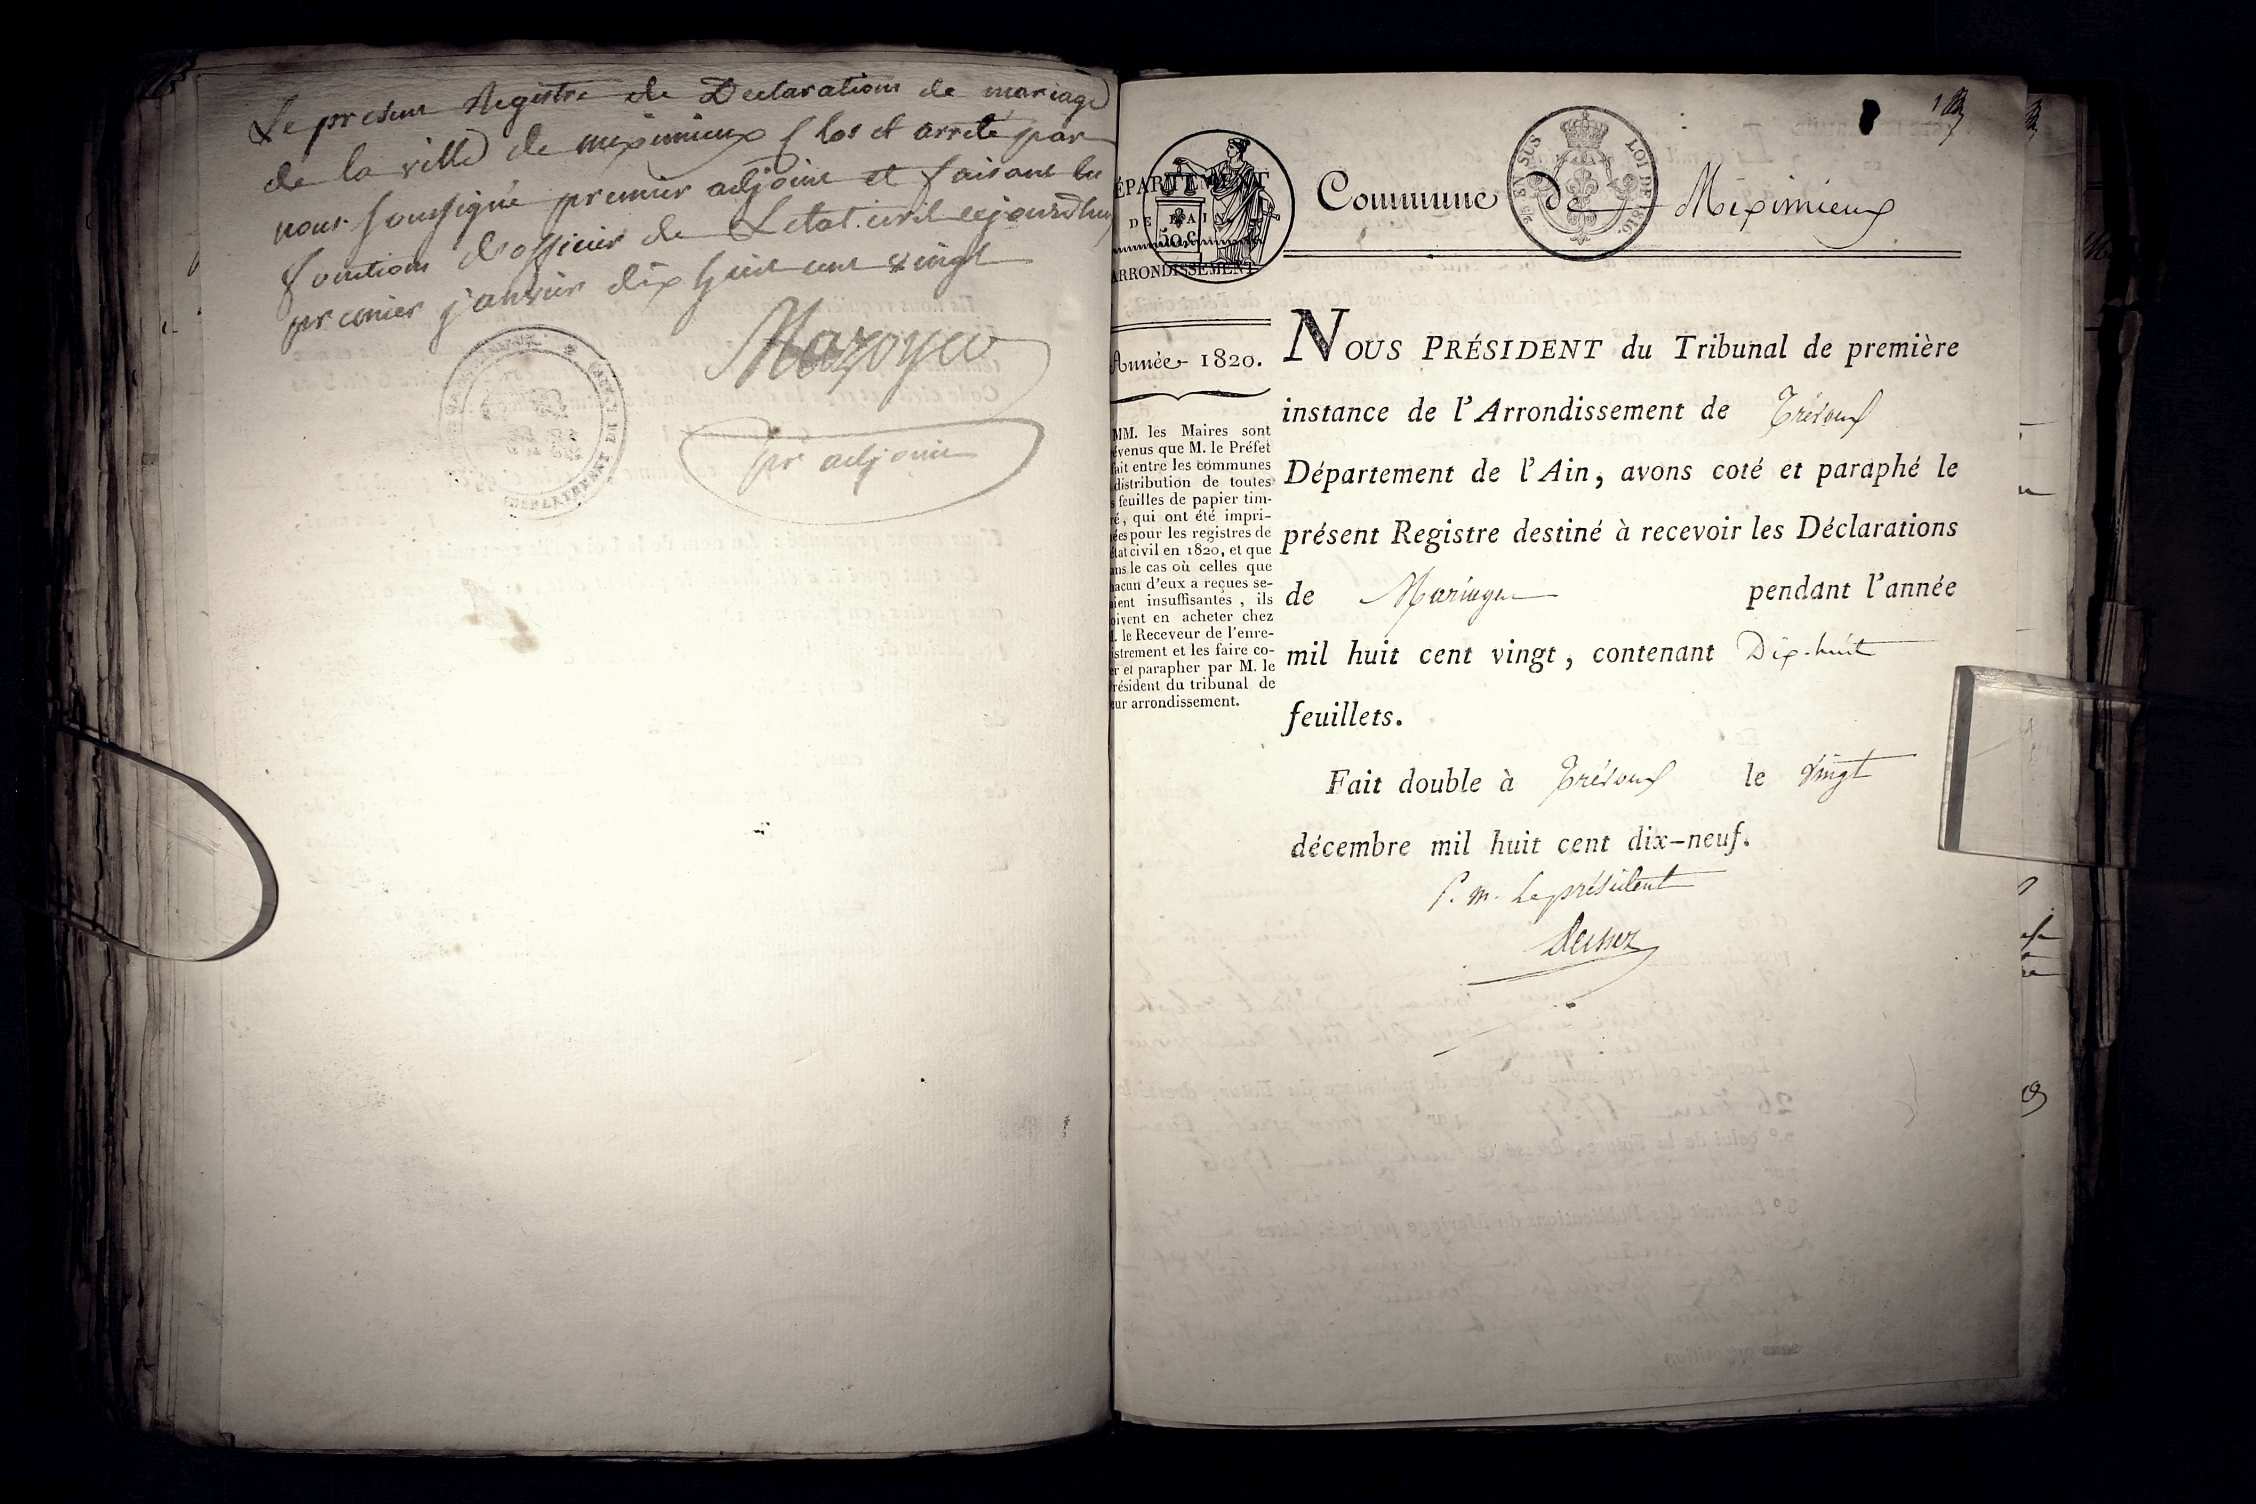 Le present Registre de Declarations de mariage
de la ville de meximieux Clos et arrété par
nous soussigné premier adjoint et faisant les
fonctions d'officier de Letat civil cejourd'huy
premier janvier dix huit cent vingt
Mazoyer
pr adjoint
DÉPARTEMENT DE L'AIN
1
DÉPARTEMENT
DE L'AIN
50 C
ARRONDISSEMENT
EN SUS
LOI DE 1816
Commune de Meximieux
Année 1820.
MM. les Maires sont
évenus que M. le Préfet
fait entre les communes
distribution de toutes
s feuilles de papier tim-
ré, qui ont été impri-
ées pour les registres de
état civil en 1820, et que
ans le cas où celles que
hacun d'eux a reçues se-
aient insuffisantes, ils
oivent en acheter chez
. le Receveur de l'enre-
istrement et les faire co-
er et parapher par M. le
résident du tribunal de
eur arrondissement.
NOUS PRÉSIDENT du Tribunal de première
instance de l'Arrondissement de Trévoux
Département de l'Ain, avons coté et paraphé le
présent Registre destiné à recevoir les Déclarations
de Mariages pendant l'année
mil huit cent vingt, contenant Dix-huit
feuillets.
Fait double à Trévoux le vingt
décembre mil huit cent dix-neuf.
P. m. Le président